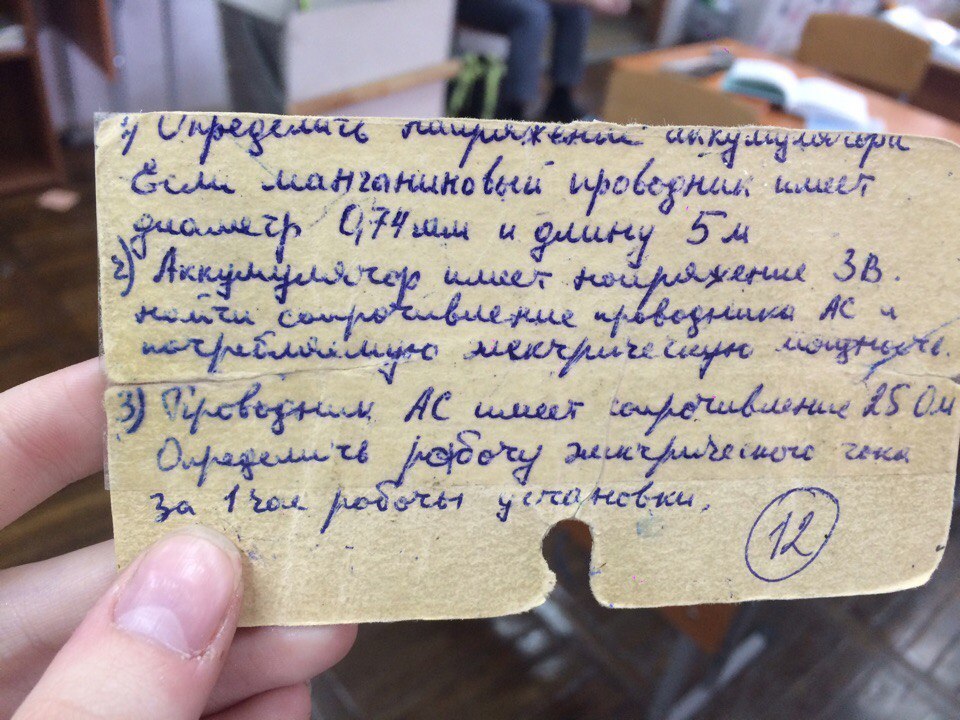 1) Определить напряжение аккумулятора
Если манганиновый проводник имеет
диаметр 0,74 мм и длину 5 м
2) Аккумулятор имеет напряжение 3 В.
найти сопротивление проводника АС и
потребляемую электрическую мощность.
3) Проводник АС имеет сопротивление 25 Ом
Определить работу электрического тока
за 1 час работы установки.
12